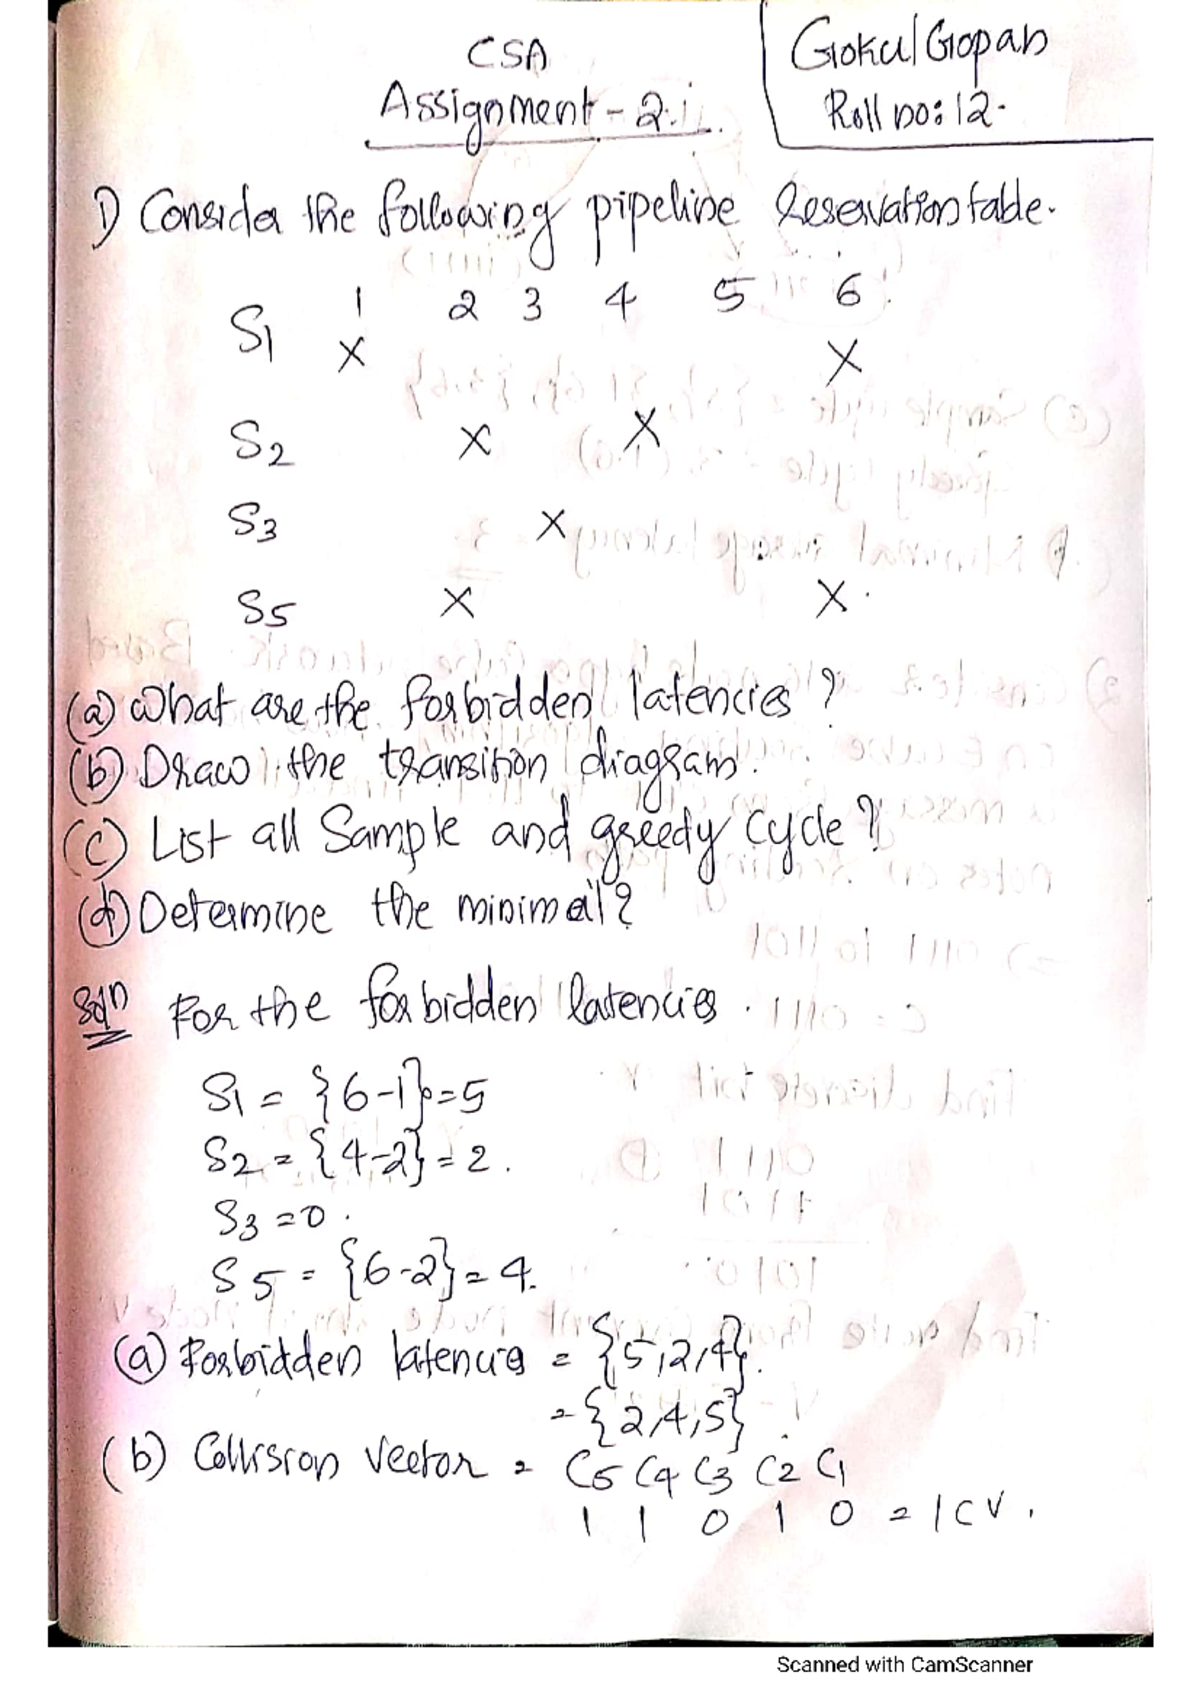 CSA
Assignment - 2.
Gokul Gopan
Roll no: 12.
1) Consider the following pipeline Reservation table.
1 2 3 4 5 6
S1 X X
S2 X X
S3 X
S5 X X
(a) What are the forbidden latencies?
(b) Draw the transition diagram.
(c) List all Sample and greedy Cycle?
(d) Determine the minimal?
Soln For the forbidden latencies.
S1 = {6-1} = 5
S2 = {4-2} = 2.
S3 = 0.
S5 = {6-2} = 4.
(a) Forbidden latencies = {5,2,4}.
= {2,4,5}
(b) Collision Vector = C5 C4 C3 C2 C1
1 1 0 1 0 = ICV.
Scanned with CamScanner